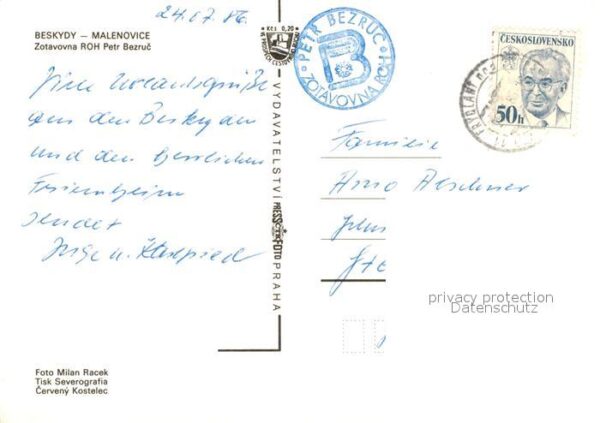 24.07.86.
BESKYDY — MALENOVICE
Zotavovna ROH Petr Bezruč
Kčs 0,20
Urlaubsgrüße
aus den Beskyden
und dem herrlichen
Ferienheim
sendet
Inge u.
VYDAVATELSTVÍ PRESSFOTO PRAHA
PETR BEZRUČ
ZOTAVOVNA ROH
B
ČESKOSLOVENSKO
50h
Familie
Arno
privacy protection
Datenschutz
Foto Milan Racek
Tisk Severografia
Červený Kostelec